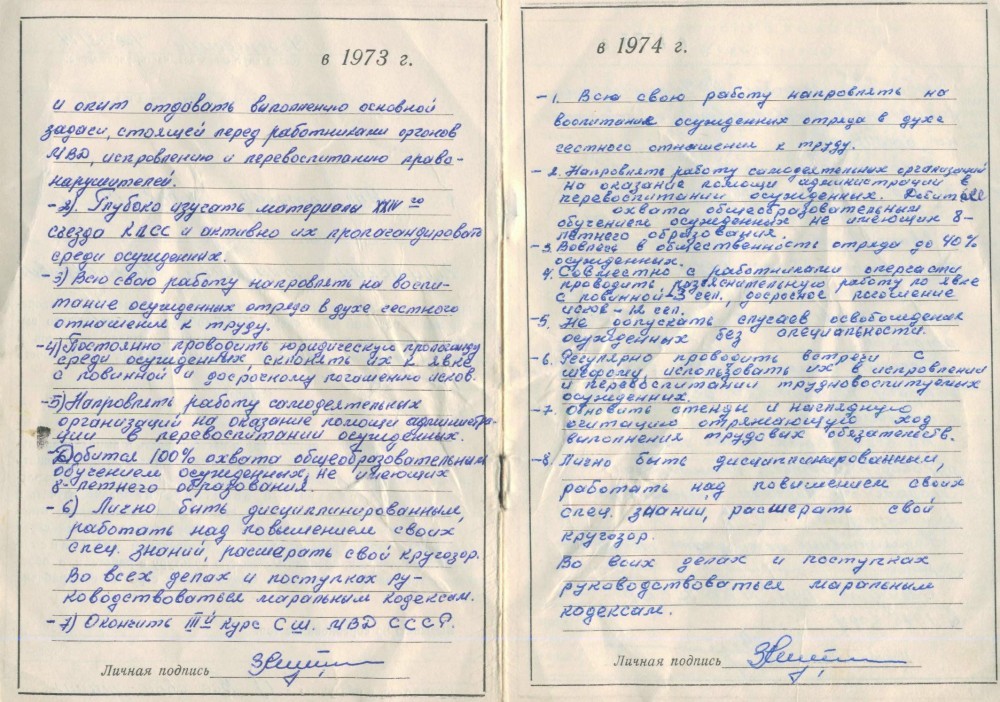 в 1973 г.
и опыт отдавать выполнению основной
задаси, стоящей перед работниками органов
МВД, исправлению и перевоспитанию право-
нарушителей.
- 2). Глубоко изусать материалы XXIV го
съезда КПСС и активно их пропагандировать
среди осужденных.
- 3) Всю свою работу направлять на воспи-
тание осужденных отряда в духе сестного
отношения к труду.
- 4) Постоянно проводить юридическую пропоганду
среди осужденных, склонять их к явке
с повинной и досросному погашению исков.
- 5) Направлять работу самодеятельных
организаций на оказание помощи администра-
ции в перевоспитании осужденных.
- Добится 100% охвата общеобразовательным
обучением осужденных, не имеющих
8-летнего образования.
- 6) Лично быть дисциплинированным,
работать над повышением своих
спец. знаний, расшерать свой кругозор.
Во всех делах и поступках ру-
ководствоваться маральным кодексам.
- 7) Окончить III й курс СШ. МВД СССР.
Личная подпись
в 1974 г.
- 1. Всю свою работу направлять на
воспитание осужденных отряда в духе
сестного отношения к труду.
- 2. Направлять работу самодеятельных организаций
на оказание помощи администрации в
перевоспитании осужденных. Добиться
охвата общеобразовательным
обучением осужденных не имеющих 8-
летнего образования.
- 3. Вовлечь в общественность отряда до 40%
осужденных.
4. Совместно с работниками оперсасти
проводить разяснительную работу по явке
с повинной - 3 сел., досросное погошение
исков - 12 сел.
- 5. Не допускать слусаев освобождения
осужденных без специальности.
- 6. Регулярно проводить встречи с
шефоми, использовать их в исправлении
и перевоспитании трудновоспитуемых
осужденных.
- 7. Обновить стенды и наглядную
огитацию отряжающую ход
выполнения трудовых обязательств.
- 8. Лично быть дисциплинированным,
работать над повышением своих
спец. знаний, расшерать свой
кругозор.
Во всих делах и поступках
руководствоваться маральным
кодексам.
Личная подпись